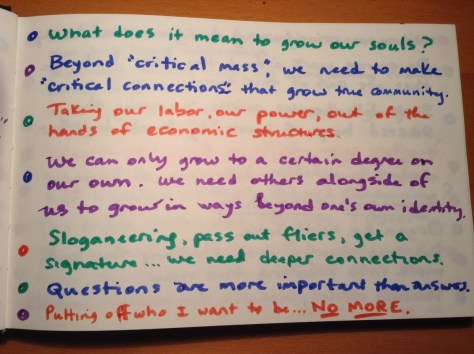 What does it mean to grow our souls?
Beyond "critical mass", we need to make
"critical connections" that grow true community.
Taking our labor, our power, out of the
hands of economic structures.
We can only grow to a certain degree on
our own. We need others alongside of
us to grow in ways beyond one's own identity.
Sloganeering, pass out fliers, get a
signature... we need deeper connections.
Questions are more important than answers.
Putting off who I want to be... NO MORE.